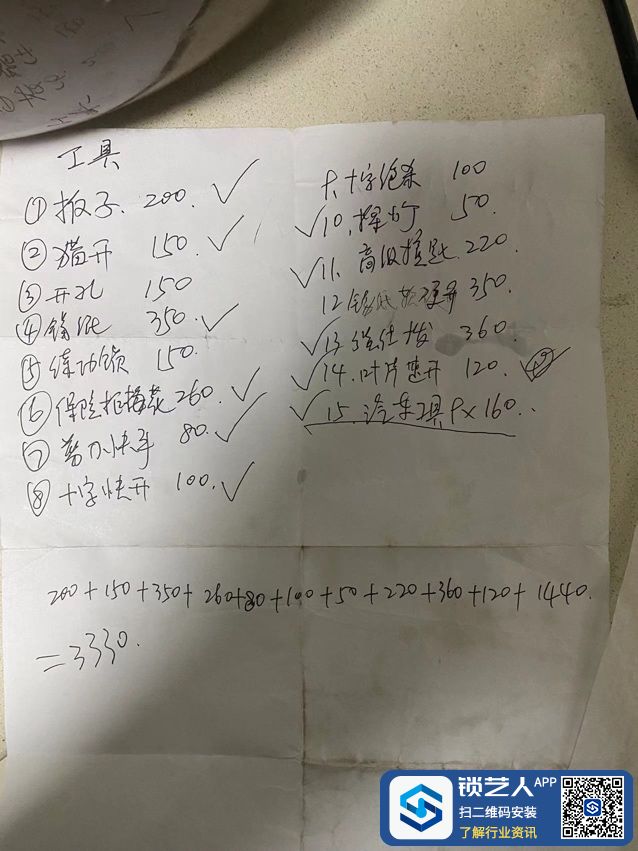 工具
① 扳子. 200. ✓
② 猫开 150. ✓
③ 开孔 150
④ 锡纸 350. ✓
⑤ 练功锁 150.
⑥ 保险柜梅花 260. ✓
⑦ 剪刀快手 80. ✓
⑧ 十字快开 100. ✓
十字绝杀 100
✓ 10. 50.
✓ 11. 高级 220.
12 锡纸软硬开 350.
✓ 13. 360.
✓ 14. 叶片速开 120.
✓ 15. 汽车工具 9×160..
200+150+350+260+80+100+50+220+360+120+1440.
=3330.
锁艺人APP
扫二维码安装
了解行业资讯